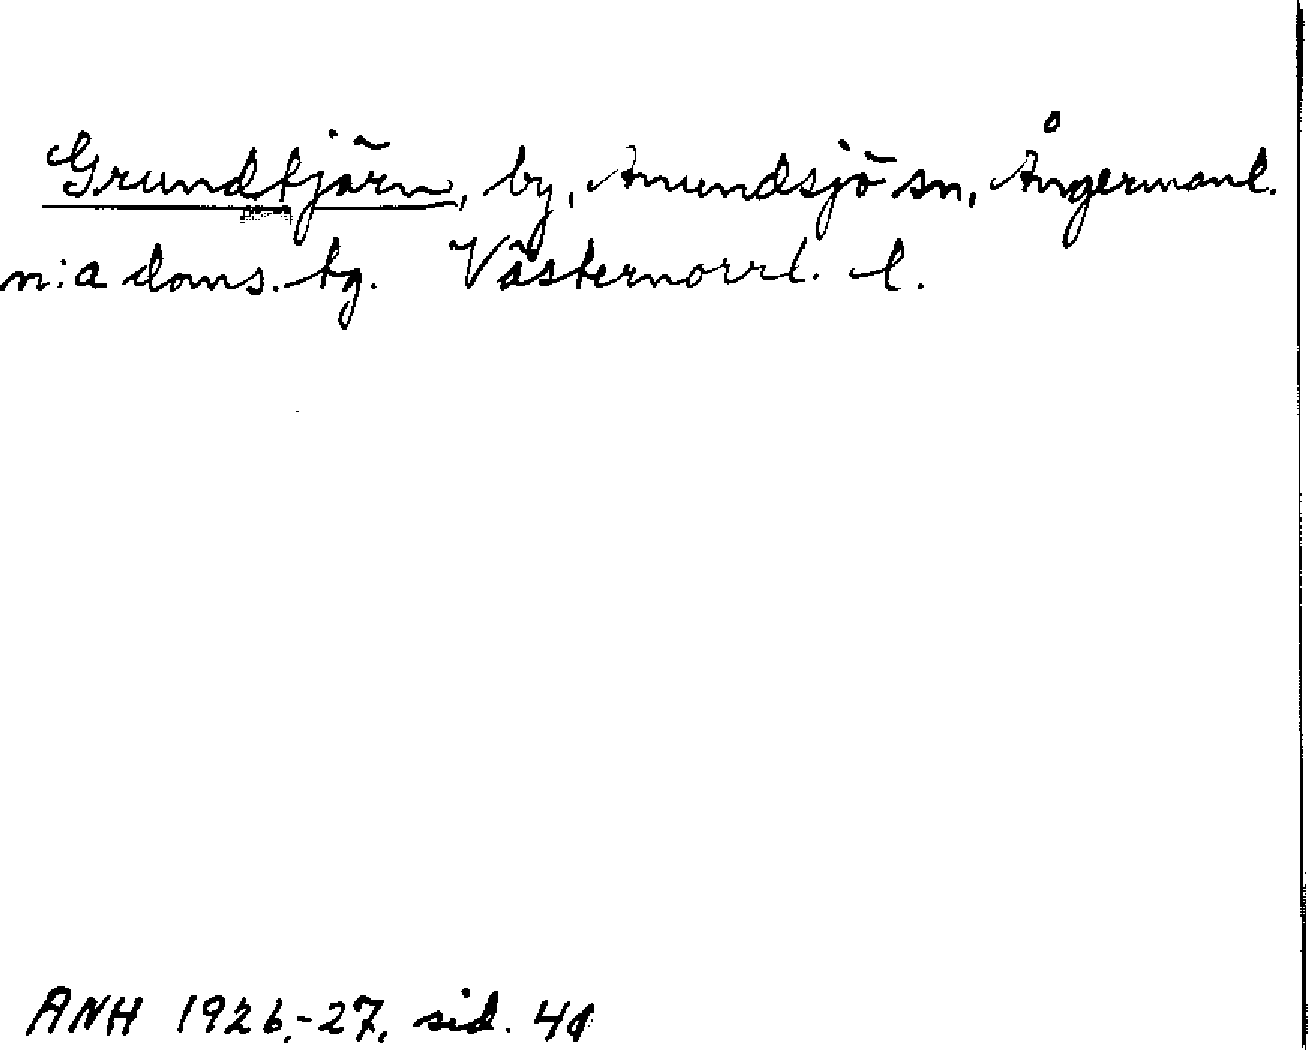 Grundtjärn, by, Anundsjö sn, Ångermanl.
n:a doms. tg. Västernorrl. l.
ANH 1926-27, sid. 41